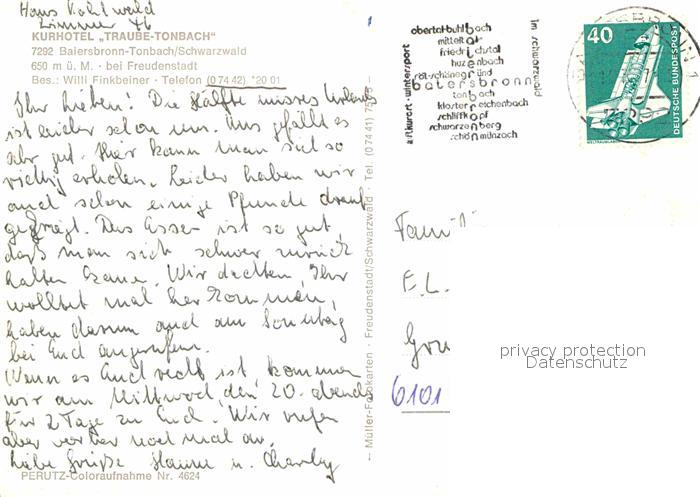 Haus Kohlwald
Zimmer 46
KURHOTEL „TRAUBE-TONBACH"
7292 Baiersbronn-Tonbach/Schwarzwald
650 m ü. M. · bei Freudenstadt
Bes.: Willi Finkbeiner · Telefon (0 74 42) *20 01
Ihr Lieben! Die Hälfte unseres Urlaubs
ist leider schon um. Uns gefällt es
sehr gut. Hier kann man sich so
richtig erholen. Leider haben wir
auch schon einige Pfunde drauf
gekriegt. Das Essen ist so gut,
daß man sich schwer zurück
halten kann. Wir dachten, Ihr
wolltet mal her kommen,
haben darum auch am Sonntag
bei Euch angerufen.
Wenn es Euch recht ist, kommen
wir am Mittwoch, den 20. abends
für 2 Tage zu Euch. Wir rufen
aber vorher noch mal an.
Liebe Grüße Hanne u. Charley
PERUTZ-Coloraufnahme Nr. 4624
Müller-Fotokarten · Freudenstadt/Schwarzwald · Tel. (0 74 41)
luftkurort · wintersport
obertal-buhlbach
mitteltal
friedrichstal
huzenbach
röt-schönegründ
baiersbronn
tonbach
klosterreichenbach
schliffkopf
schwarzenberg
schönmünzach
im schwarzwald
40
DEUTSCHE BUNDESPOST
WELTRAUMLABOR
Fami
E.L.
Gru
6101
privacy protection
Datenschutz